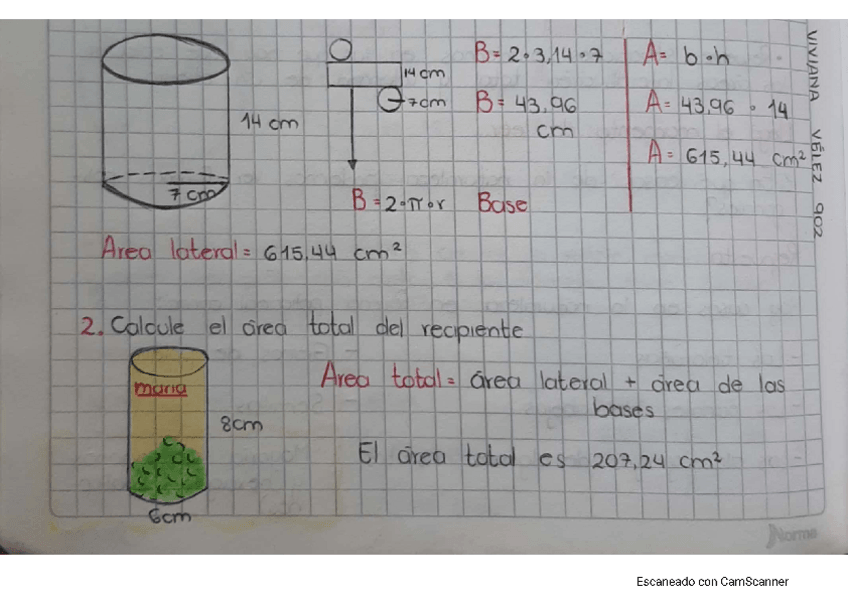 B= 2•3,14•7
A= b•h
14 cm
7cm
B= 43,96
cm
A= 43,96 • 14
14 cm
A= 615,44 cm²
7 cm
B=2•π•r Base
VIVIANA VÉLEZ 902
Area lateral= 615,44 cm²
2. Calcule el área total del recipiente
maria
Area total= área lateral + área de las
bases
8cm
El área total es 207,24 cm²
6cm
Norma
Escaneado con CamScanner